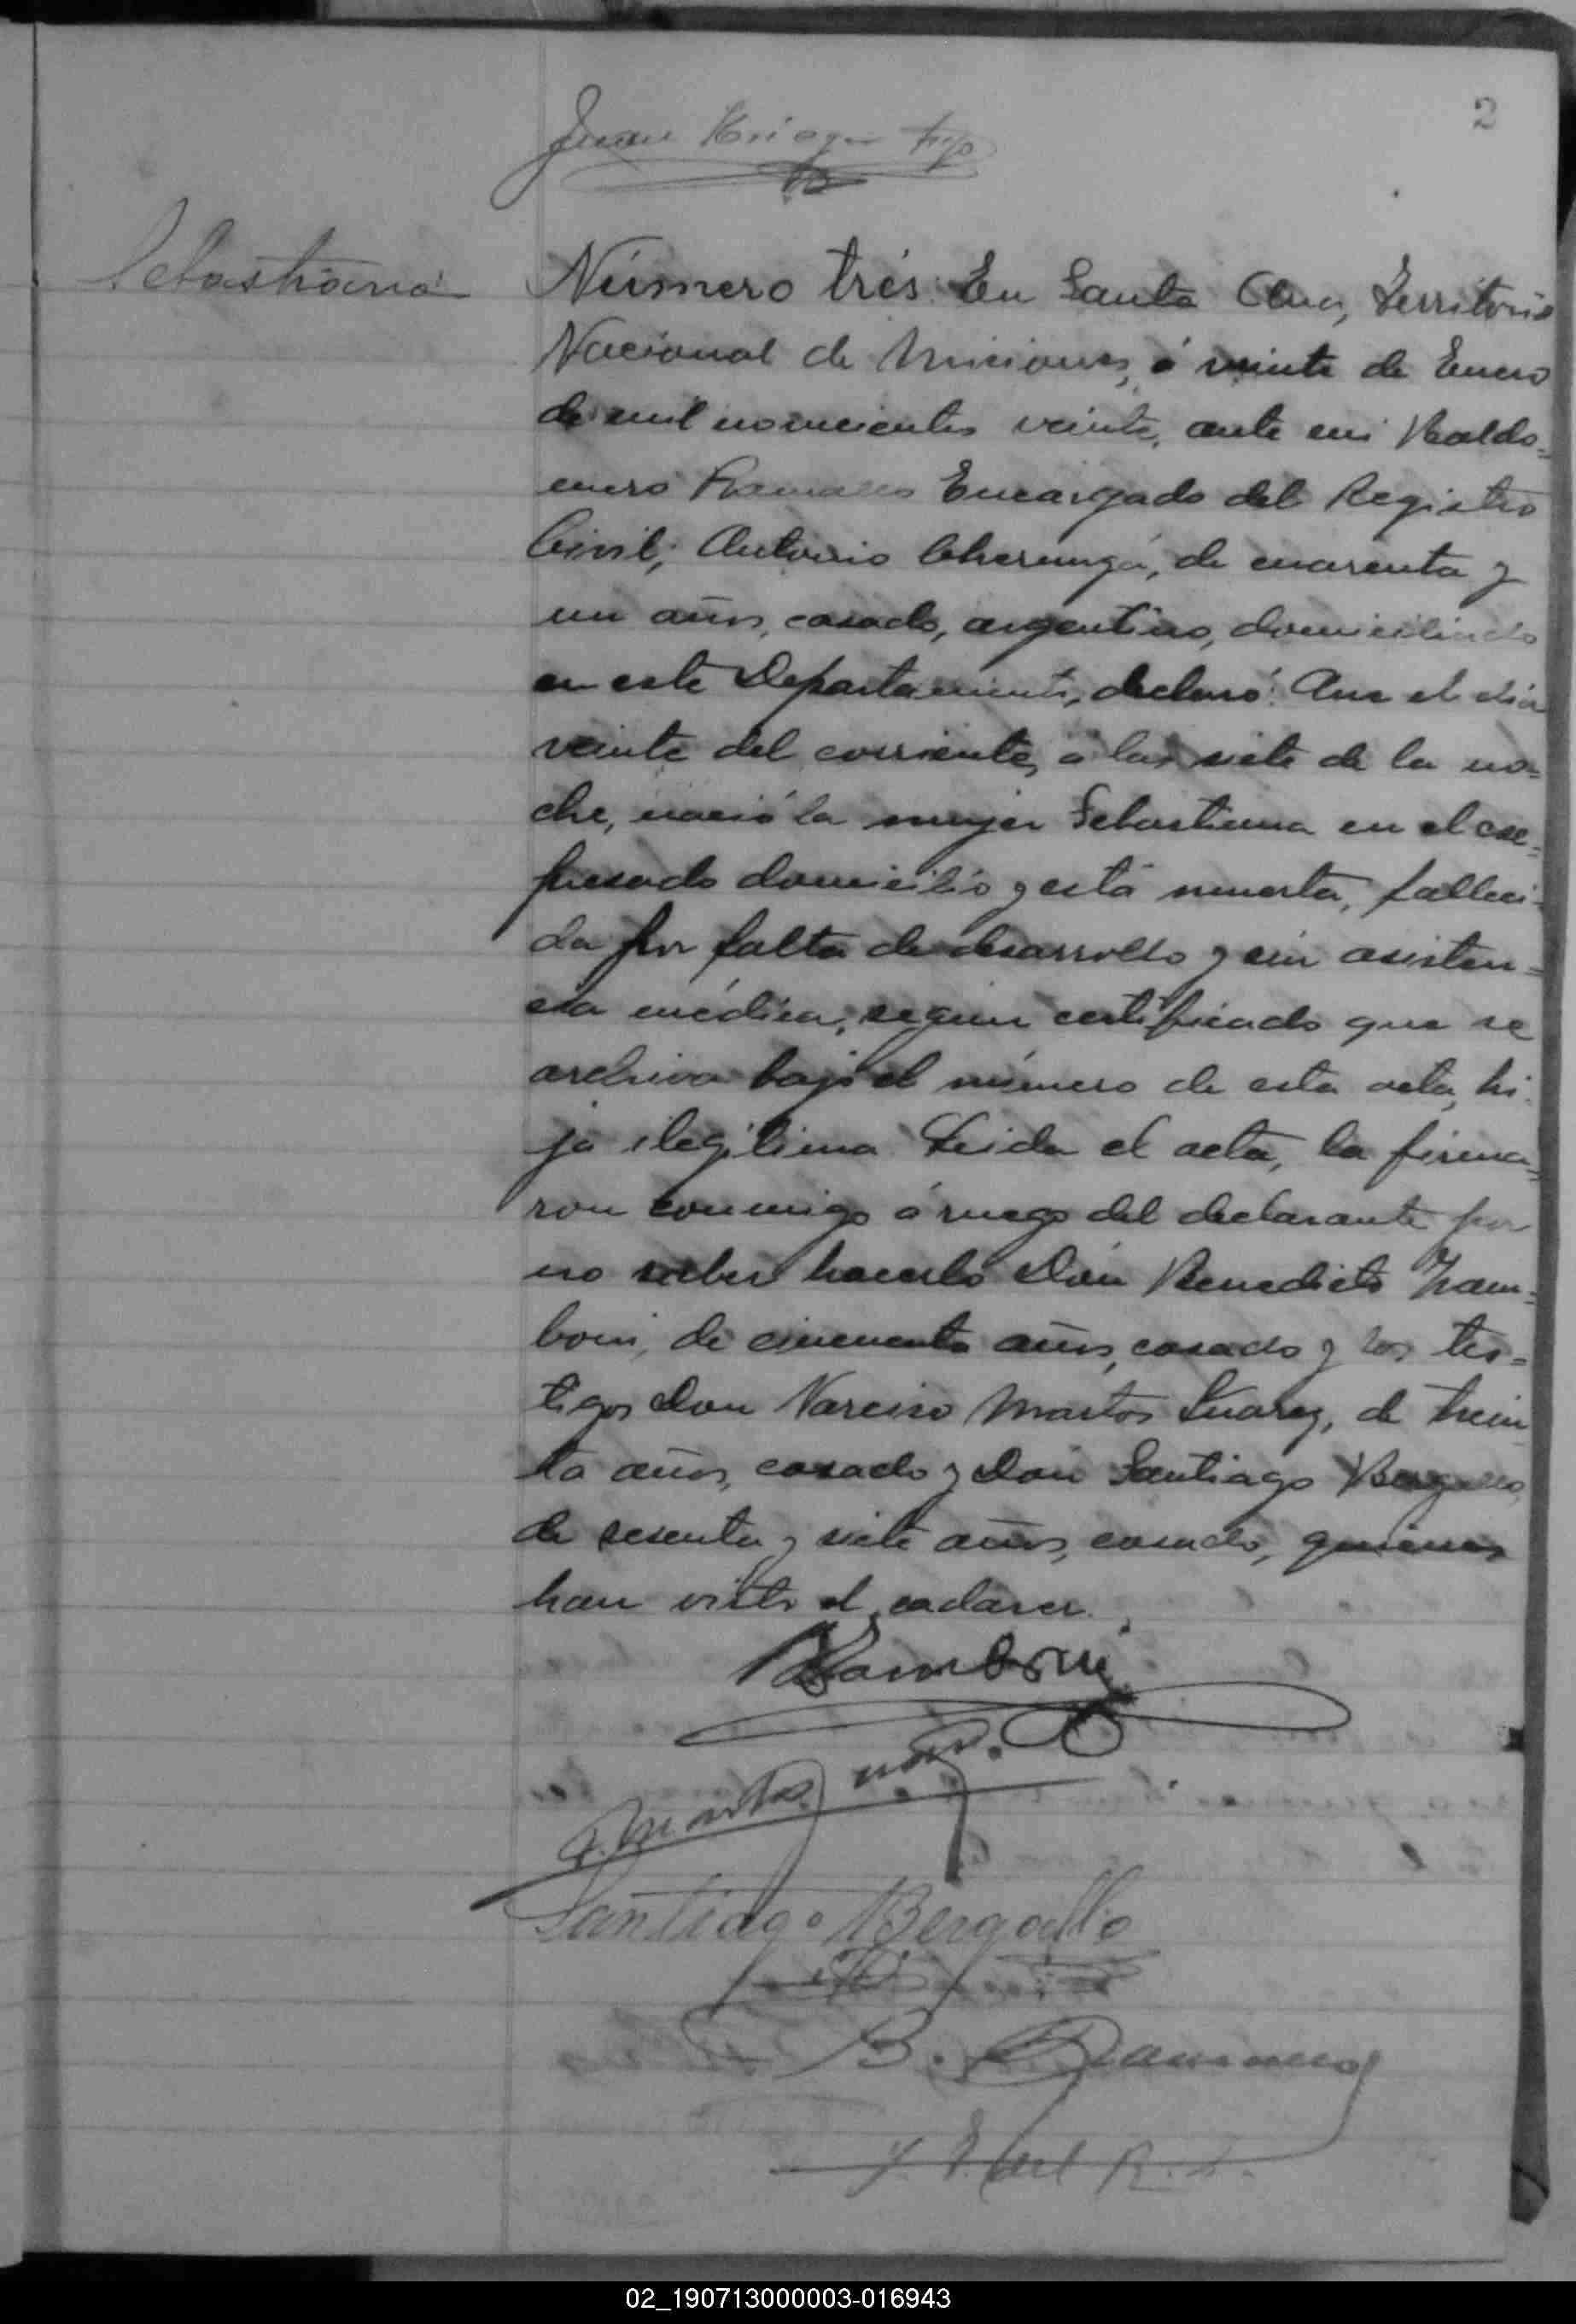 2
Juan Krieger hijo
Sebastiana
Número trés. En Santa Ana, Territorio
Nacional de Misiones, á veinte de Enero
de mil novecientos veinte, ante mi Baldo-
mero Encargado del Registro
Civil; Antonio Cherunga, de cuarenta y
un años, casado, argentino, domiciliado
en este Departamento, declaró: Que el dia
veinte del corriente, á las siete de la no-
che, nació la mujer Sebastiana en el ex-
presado domicilio y está muerta, falleci-
da por falta de desarrollo y sin asisten-
cia médica, segun certificado que se
archiva bajo el número de esta acta, hi-
ja ilegítima. Leida el acta, la firma-
ron conmigo á ruego del declarante por
no saber hacerlo Don Benedicto Zam-
boni, de cincuenta años, casado y los tes-
tigos Don Narciso Martos Suarez, de trein
ta años, casado y Don Santiago Bergallo,
de sesenta y siete años, casado, quienes
han visto el cadaver.
BZamboni
Santiago Bergallo
B.
E. del R. C.
02_190713000003-016943